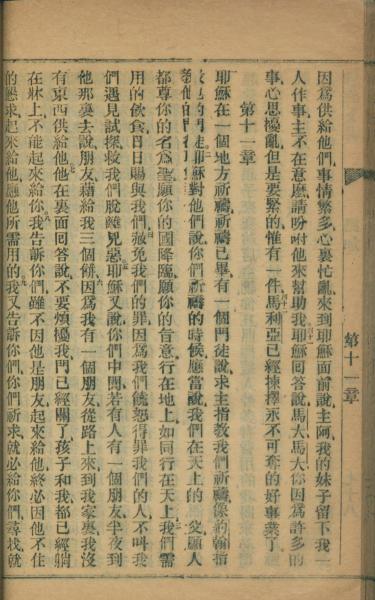 因爲供給他們事情繁多心裏忙亂來到耶穌面前說主阿我的妹子留下我一
人作事主不在意麽請吩咐他來幫助我耶穌囘答說馬大馬大你因爲許多的
事心思擾亂但是要緊的惟有一件馬利亞已經揀擇永不可奪的好事業了
第十一章
耶穌在一個地方祈禱祈禱已畢有一個門徒說求主指敎我們祈禱像約翰指
敎他的門徒耶穌對他們說你們祈禱的時候應當說我們在天上的父願人
都尊你的名爲聖願你的國降臨願你的旨意行在地上如同行在天上我們需
用的飮食日日賜與我們赦免我們的罪因爲我們饒恕得罪我們的人不叫我
們遇見試探救我們脫離兇惡耶穌又說你們中間若有人有一個朋友半夜到
他那裏去說朋友藉給我三個餅因爲我有一個朋友從路上來到我家裏我沒
有東西供給他他在裏面囘答說不要煩擾我門已經關了孩子和我都已經躺
在牀上不能起來給你我告訴你們雖不因他是朋友起來給他終必因他不住
的懇求起來給他應他所需用的我又告訴你們你們祈求就必給你們尋找就
第十一章